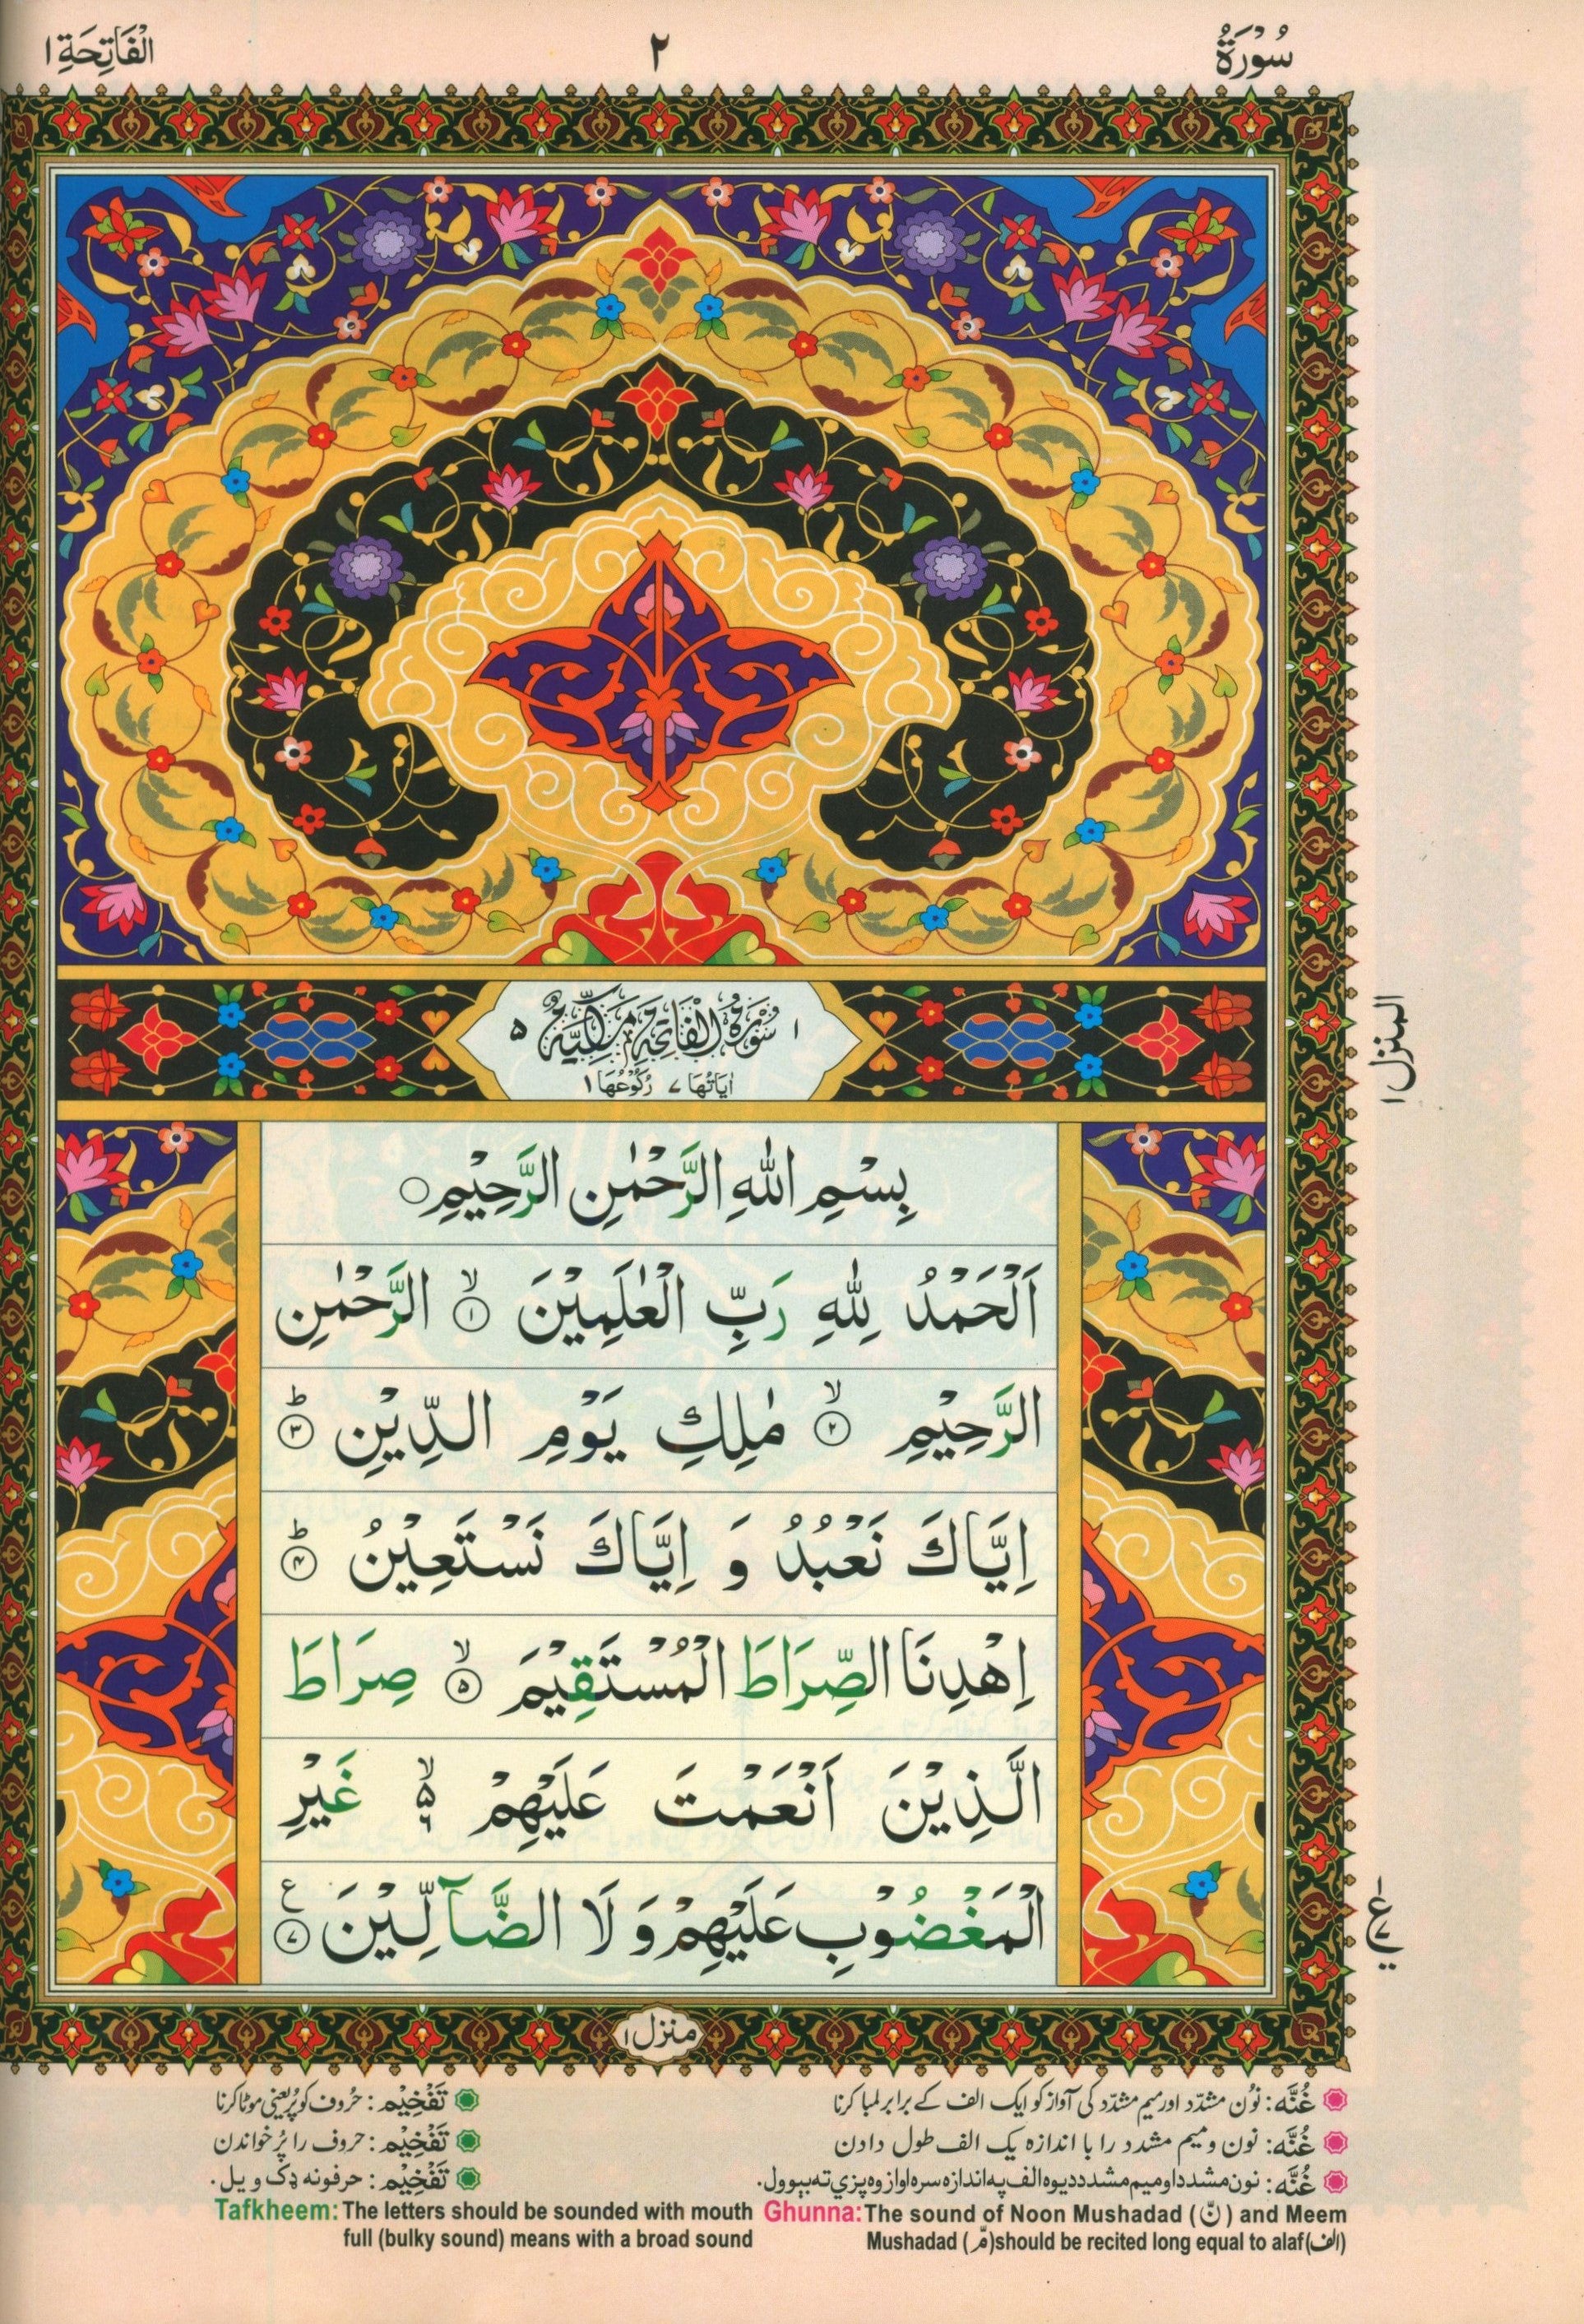 سُوْرَةُ
٢
الْفَاتِحَةِ ١
١ سُوْرَةُ الْفَاتِحَةِ مَكِّيَّةٌ ٥
اٰيَاتُهَا ٧ رُكُوْعُهَا ١
بِسْمِ اللّٰهِ الرَّحْمٰنِ الرَّحِيْمِ ○
اَلْحَمْدُ لِلّٰهِ رَبِّ الْعٰلَمِيْنَ ۙ ١ الرَّحْمٰنِ
الرَّحِيْمِ ۙ ٢ مٰلِكِ يَوْمِ الدِّيْنِ ؕ ٣
اِيَّاكَ نَعْبُدُ وَ اِيَّاكَ نَسْتَعِيْنُ ؕ ٤
اِهْدِنَا الصِّرَاطَ الْمُسْتَقِيْمَ ۙ ٥ صِرَاطَ
الَّذِيْنَ اَنْعَمْتَ عَلَيْهِمْ ۙ ۵ ٦ غَيْرِ
الْمَغْضُوْبِ عَلَيْهِمْ وَ لَا الضَّآلِّيْنَ ع ٧
المنزل ١
منزل ١
غُنَّه: نوُن مشدّد اور میم مشدّد کی آواز کو ایک الف کے برابر لمبا کرنا
غُنَّه: نون و میم مشدد را با اندازه یک الف طول دادن
غُنَّه: نون مشدد او میم مشدد دیوه الف په اندازه سره اواز وه پزي ته بېوول.
تَفْخِیْم: حُروف کو پُر یعنی موٹا کرنا
تَفْخِیْم: حروف را پُر خواندن
تَفْخِیْم: حرفونه ډک ویل.
Tafkheem: The letters should be sounded with mouth
full (bulky sound) means with a broad sound
Ghunna: The sound of Noon Mushadad (نّ) and Meem
Mushadad (مّ) should be recited long equal to alaf (الف)